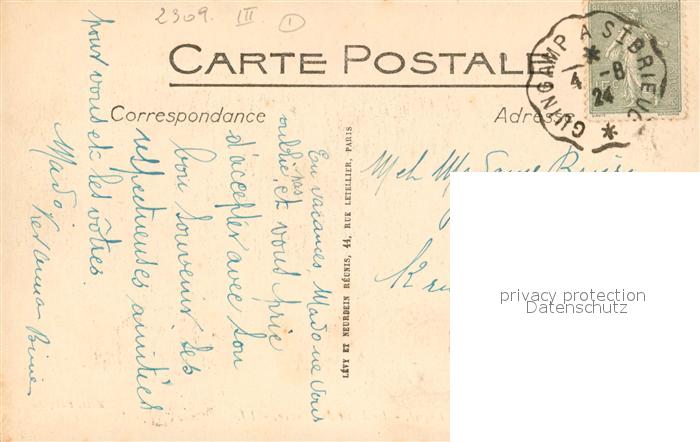 2309. III 1
CARTE POSTALE
Correspondance
Adresse
GUINGAMP A ST BRIEUC
4 -8
24
En vacances Mado ne vous
oublie pas et vous prie
d'accepter avec son
bon souvenir ses
respectueuses amitiés
pour vous et les vôtres.
Mado
LÉVY ET NEURDEIN RÉUNIS, 44, RUE LETELLIER, PARIS
privacy protection
Datenschutz